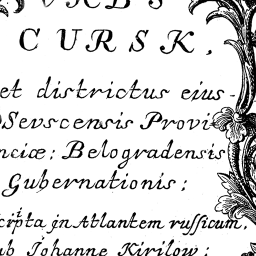 URBS
CURSK,
et districtus eius-
Sevscensis Provi
nciæ; Belogradensis
Gubernationis;
cripta jn Atlantem russicum,
ub Johanne Kirilow;